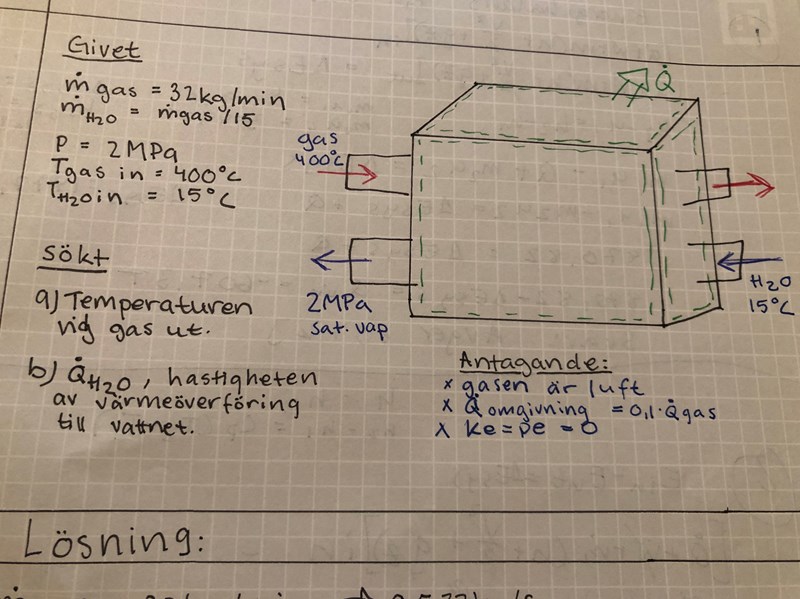 Givet
ṁ gas = 32kg/min
ṁ H₂O = ṁgas/15
P = 2MPa
T gas in = 400°C
T H₂O in = 15°C
gas
400°C
Q̇
sökt
a) Temperaturen
vid gas ut.
b) Q̇ H₂O, hastigheten
av värmeöverföring
till vattnet.
2MPa
sat. vap
H₂O
15°C
Antagande:
x gasen är luft
x Q̇ omgivning = 0,1·Q̇gas
x ke = pe = 0
Lösning: